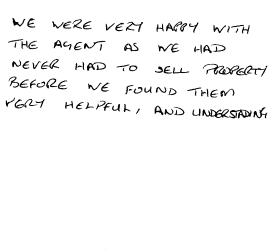 WE WERE VERY HAPPY WITH
THE AGENT AS WE HAD
NEVER HAD TO SELL PROPERTY
BEFORE WE FOUND THEM
VERY HELPFUL, AND UNDERSTADING